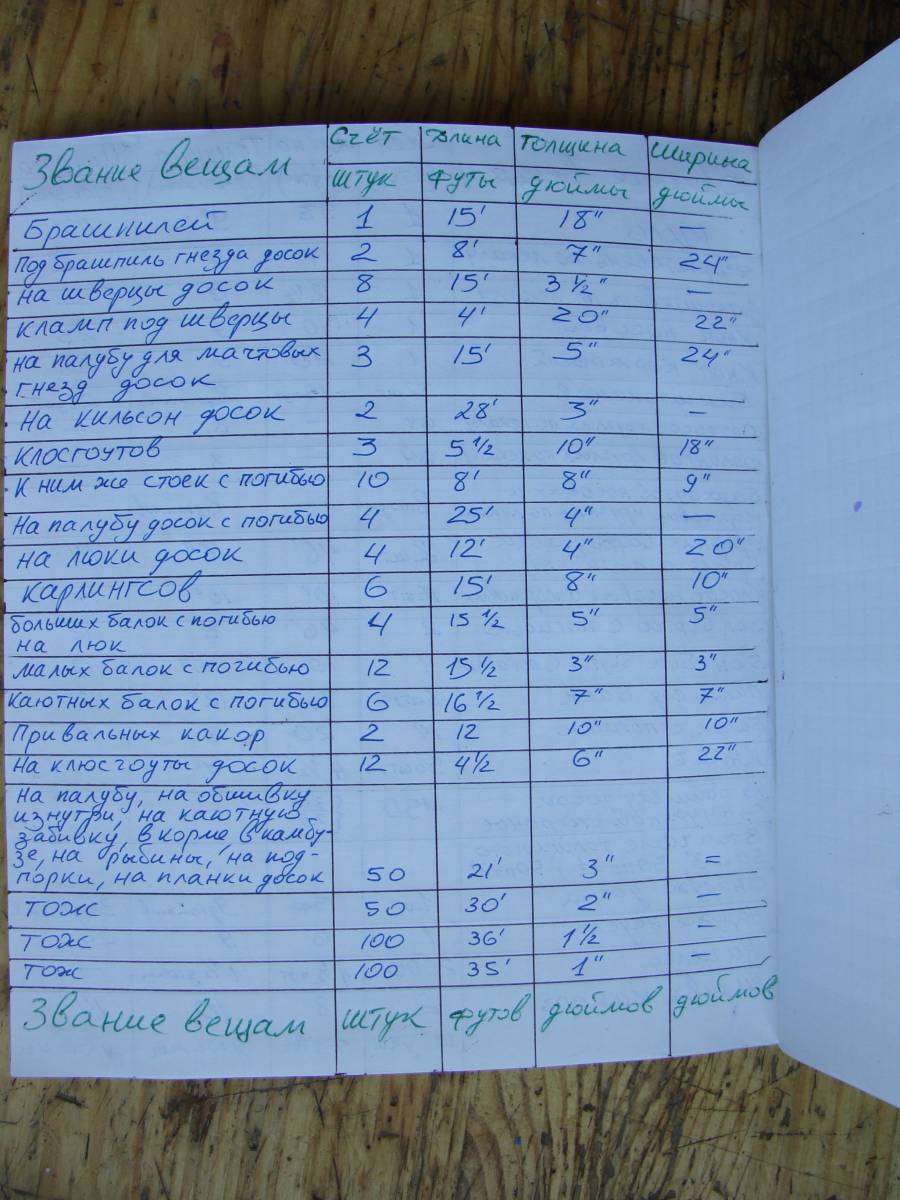 Звание вещам Счёт Длина Толщина Ширина
штук футы дюймы дюймы
Брашпилей 1 15' 18" —
Под брашпиль гнезда досок 2 8' 7" 24"
на шверцы досок 8 15' 3 1/2" —
кламп под шверцы 4 4' 20" 22"
на палубу для мачтовых 3 15' 5" 24"
гнезд досок
На кильсон досок 2 28' 3" —
клосгоутов 3 5 1/2 10" 18"
К ним же стоек с погибью 10 8' 8" 9"
На палубу досок с погибью 4 25' 4" —
на люки досок 4 12' 4" 20"
карлингсов 6 15' 8" 10"
больших балок с погибью 4 15 1/2 5" 5"
на люк
малых балок с погибью 12 15 1/2 3" 3"
Каютных балок с погибью 6 16 1/2 7" 7"
Привальных какор 2 12 10" 10"
На клюсгоуты досок 12 4 1/2 6" 22"
на палубу, на обшивку
изнутри, на каютную
забивку, в корме в камбу-
зе, на рыбины, на под-
порки, на планки досок 50 21' 3" =
тож 50 30' 2" —
тож 100 36' 1 1/2 —
тож 100 35' 1" —
Звание вещам штук футов дюймов дюймов